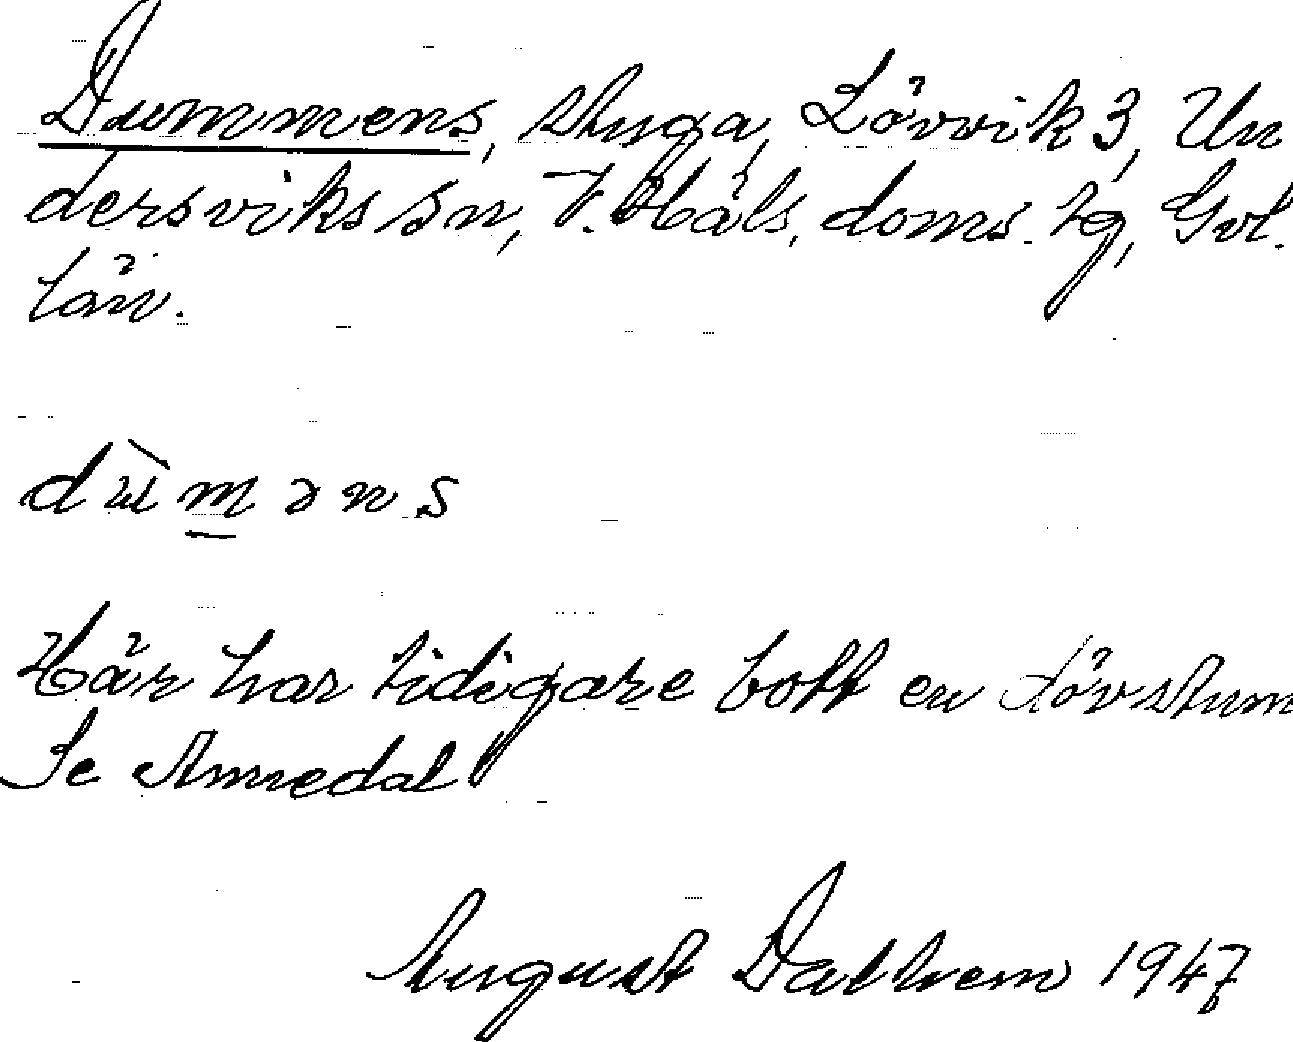 Dummens, stuga, Lövvik 3, Un
dersviks sn, V. Häls. doms. tg, Gvl.
län.
dùməns
Här har tidigare bott en dövstum
Se Annedal
August Dalhem 1947